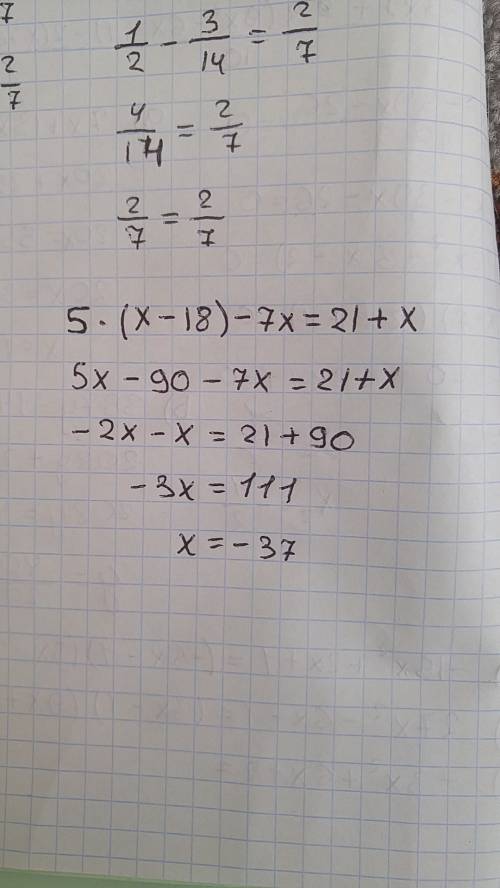 7
1/2 - 3/14 = 2/7
2/7
4/14 = 2/7
2/7 = 2/7
5 · (x - 18) - 7x = 21 + x
5x - 90 - 7x = 21 + x
- 2x - x = 21 + 90
- 3x = 111
x = - 37